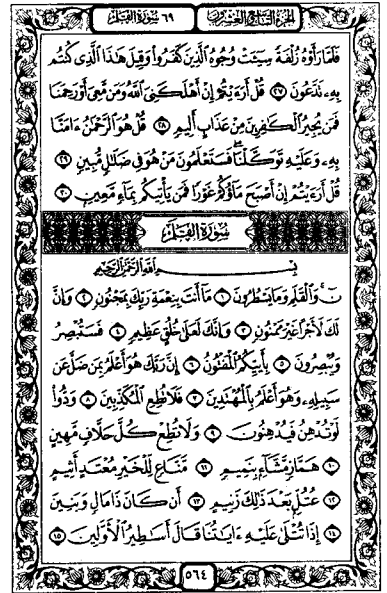 الجزء التاسع والعشرون ٦٩ سورة القلم
فَلَمَّا رَأَوْهُ زُلْفَةً سِيٓـَٔتْ وُجُوهُ ٱلَّذِينَ كَفَرُوا۟ وَقِيلَ هَٰذَا ٱلَّذِى كُنتُم
بِهِۦ تَدَّعُونَ ٢٧ قُلْ أَرَءَيْتُمْ إِنْ أَهْلَكَنِىَ ٱللَّهُ وَمَن مَّعِىَ أَوْ رَحِمَنَا
فَمَن يُجِيرُ ٱلْكَٰفِرِينَ مِنْ عَذَابٍ أَلِيمٍ ٢٨ قُلْ هُوَ ٱلرَّحْمَٰنُ ءَامَنَّا
بِهِۦ وَعَلَيْهِ تَوَكَّلْنَا ۖ فَسَتَعْلَمُونَ مَنْ هُوَ فِى ضَلَٰلٍ مُّبِينٍ ٢٩
قُلْ أَرَءَيْتُمْ إِنْ أَصْبَحَ مَآؤُكُمْ غَوْرًا فَمَن يَأْتِيكُم بِمَآءٍ مَّعِينٍۭ ٣٠
سُورَةُ القَلَمِ
بِسْمِ ٱللَّهِ ٱلرَّحْمَٰنِ ٱلرَّحِيمِ
نٓ ۚ وَٱلْقَلَمِ وَمَا يَسْطُرُونَ ١ مَآ أَنتَ بِنِعْمَةِ رَبِّكَ بِمَجْنُونٍ ٢ وَإِنَّ
لَكَ لَأَجْرًا غَيْرَ مَمْنُونٍ ٣ وَإِنَّكَ لَعَلَىٰ خُلُقٍ عَظِيمٍ ٤ فَسَتُبْصِرُ
وَيُبْصِرُونَ ٥ بِأَييِّكُمُ ٱلْمَفْتُونُ ٦ إِنَّ رَبَّكَ هُوَ أَعْلَمُ بِمَن ضَلَّ عَن
سَبِيلِهِۦ وَهُوَ أَعْلَمُ بِٱلْمُهْتَدِينَ ٧ فَلَا تُطِعِ ٱلْمُكَذِّبِينَ ٨ وَدُّوا۟
لَوْ تُدْهِنُ فَيُدْهِنُونَ ٩ وَلَا تُطِعْ كُلَّ حَلَّافٍ مَّهِينٍ
١٠ هَمَّازٍ مَّشَّآءٍۭ بِنَمِيمٍ ١١ مَّنَّاعٍ لِّلْخَيْرِ مُعْتَدٍ أَثِيمٍ
١٢ عُتُلٍّۭ بَعْدَ ذَٰلِكَ زَنِيمٍ ١٣ أَن كَانَ ذَا مَالٍ وَبَنِينَ
١٤ إِذَا تُتْلَىٰ عَلَيْهِ ءَايَٰتُنَا قَالَ أَسَٰطِيرُ ٱلْأَوَّلِينَ ١٥
٥٦٤